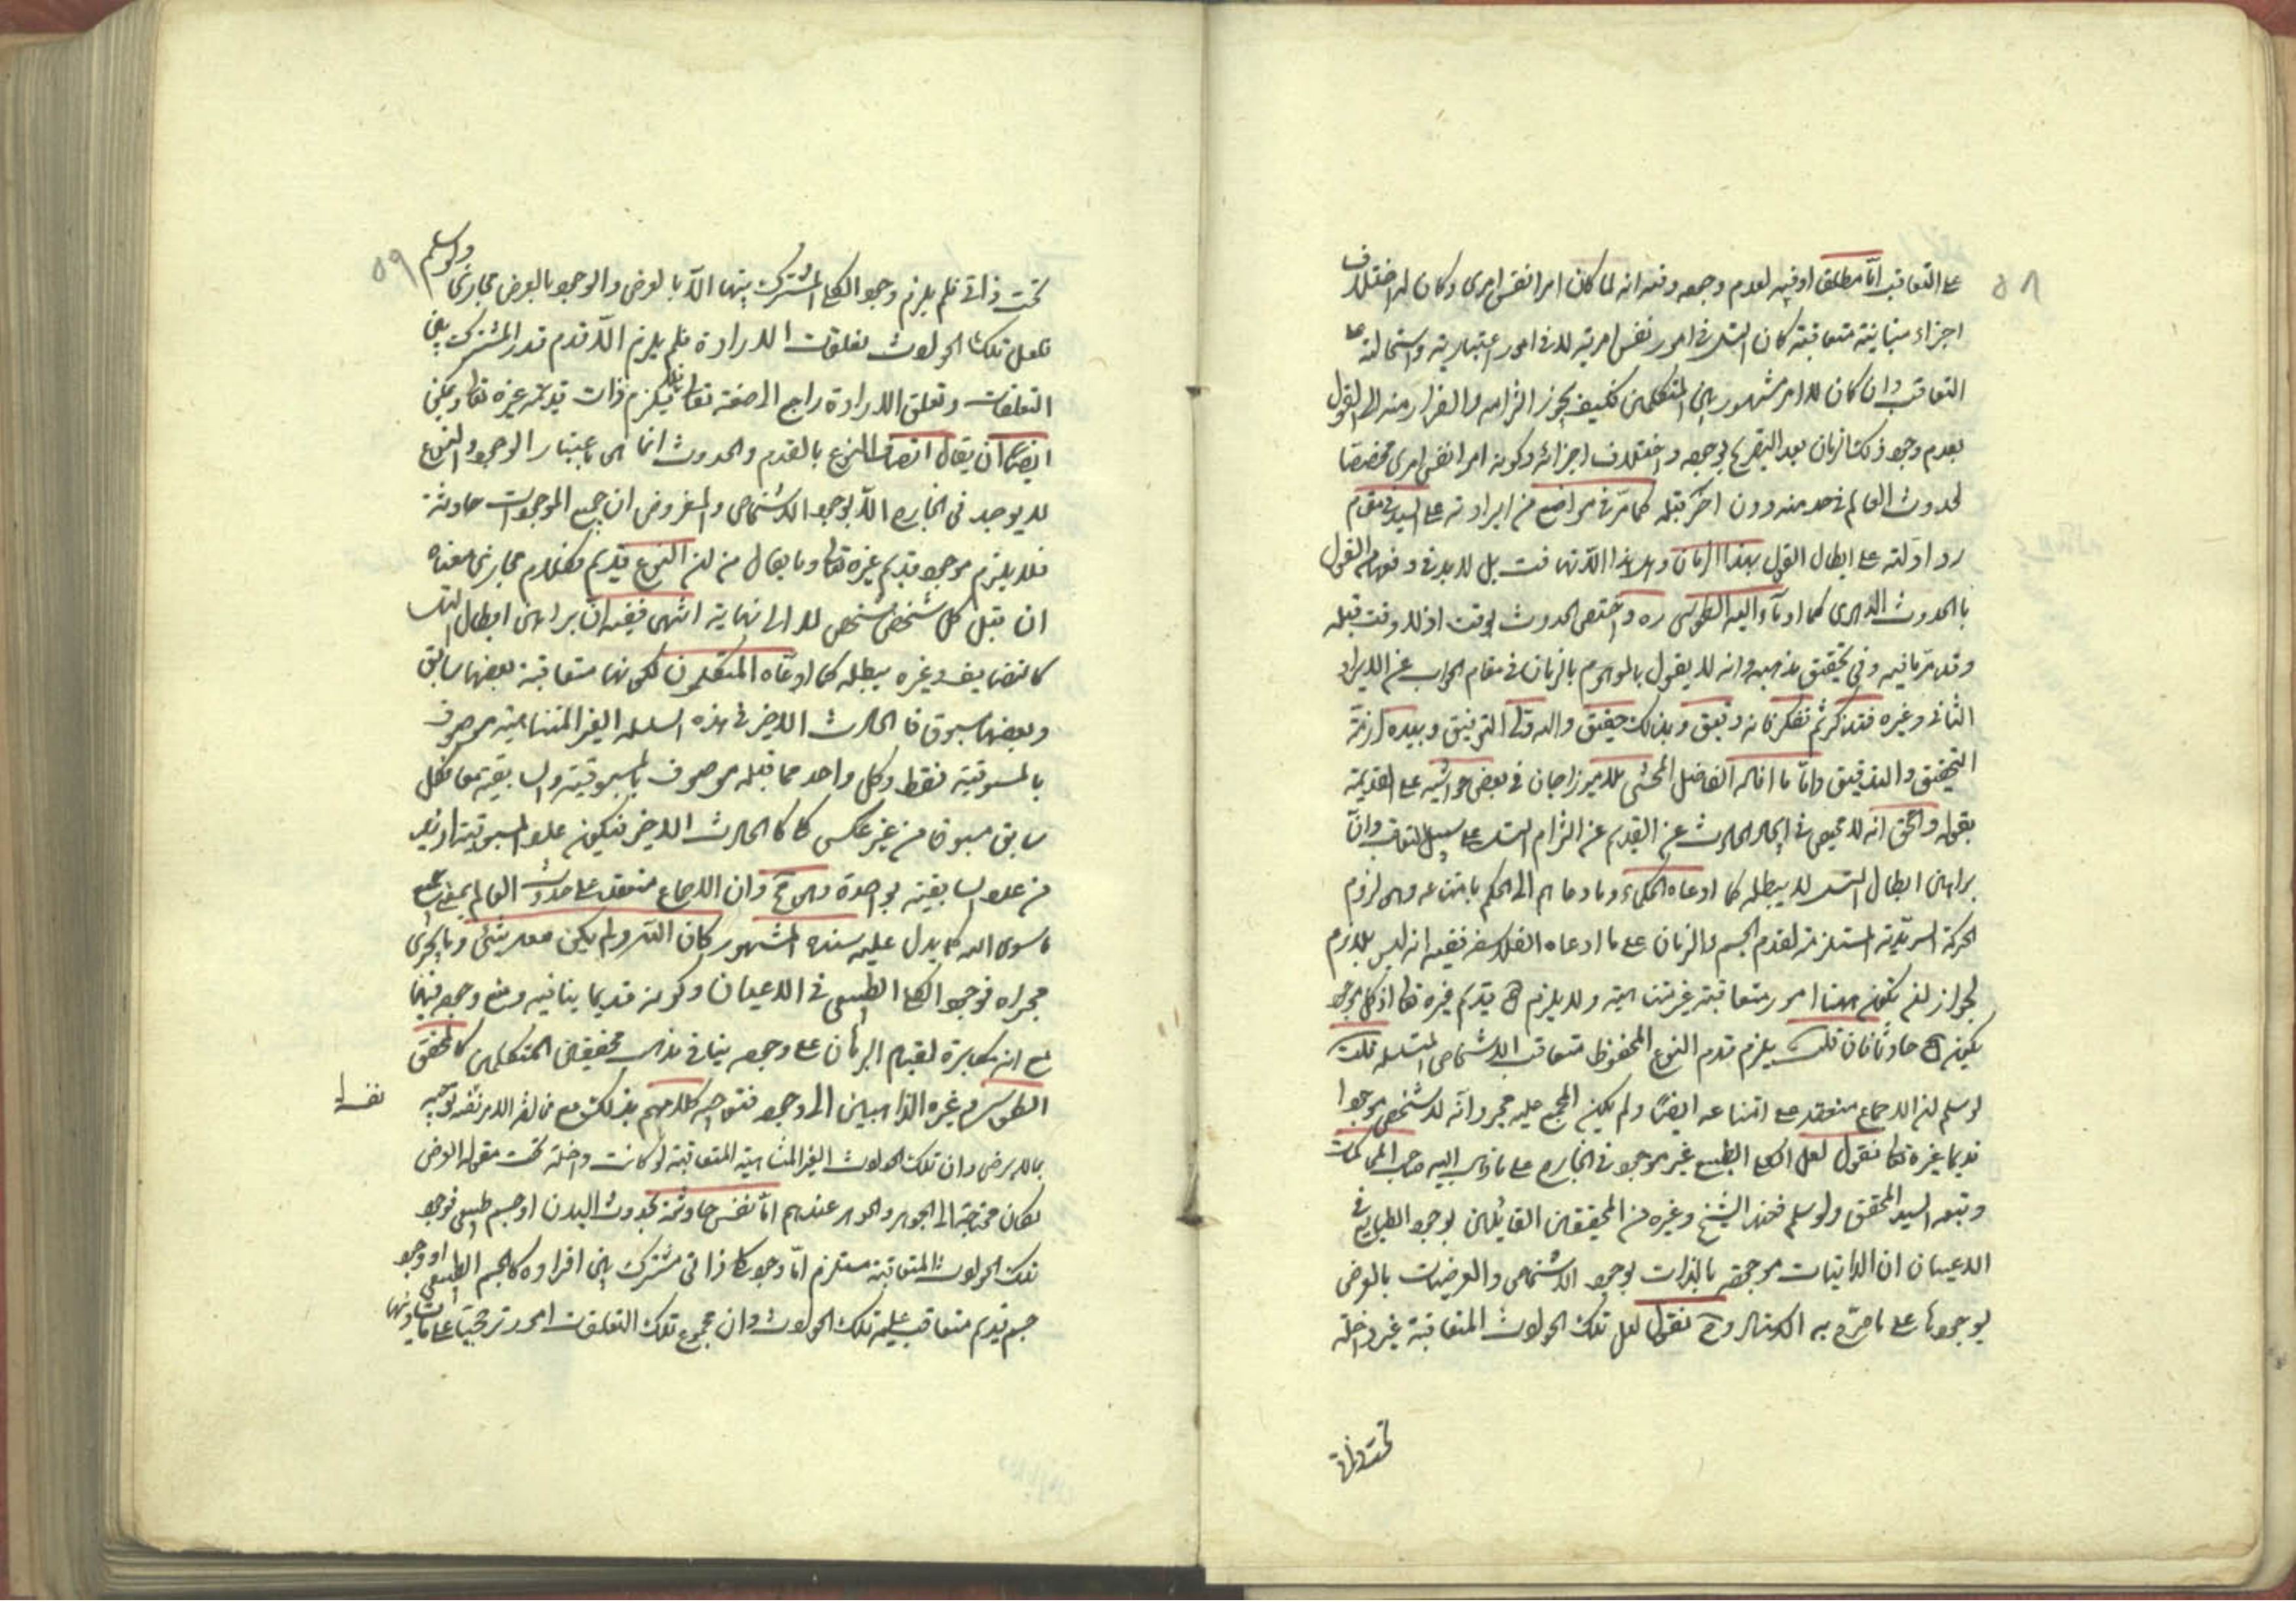 ٥٨
على التعاقب اما مطلقا او فيه لعدم وجوده وفيه انه لما كان امرا نفس امرى وكان له اختلاف
اجزاء متباينة متعاقبة كان التسلسل في امور نفس امرية لا في امور اعتبارية واستحالته
التعاقب وان كان للامر مشهور بين المتكلمين فكيف يجوز التزامه والفرار منه الى القول
بعدم وجود ذلك الزمان بعد التصريح بوجوده واختلاف اجزائه وكونه امرا نفس امرى مخصصا
لحدوث العالم في حد منه دون اخر قبله كما مرّ في مواضع من ايراداته على السيد في مقام
رد ادلته على ابطال القول بهذا الزمان وهل هذا الا تهافت بل لا بد في دفعه من القول
بالحدوث الدهرى كما اومأ اليه الطوسى ره واختص الحدوث بوقت اذ لا وقت قبله
وقد مرّ ما فيه وفي تحقيق مذهبه وانه لا يقول بالموهوم بالزمان في مقام الجواب عن الايراد
الثانى وغيره فتذكر ثم تفكر فانه دقيق وبذلك حقيق والله ولى التوفيق وبيده ازمّة
التحقيق والتدقيق وامّا ما افاده الفاضل المحشى الميرزاجان في بعض حواشيه على القديمة
بقوله والحق انه لا محيص في ايجاد الحادث عن القديم عن التزام التسلسل على سبيل التعاقب وانّ
براهين ابطال التسلسل لا يبطله كما ادعاه الحكماء وما دعاهم الى الحكم بامتناعه وهو لزوم
الحركة السرمدية المستلزمة لقدم الجسم والزمان على ما ادعاه الفلاسفة ففيه انه ليس بلازم
لجواز ان تكون هناك امور متعاقبة غير متناهية ولا يلزم قديم غيره تعالى اذ كل موجود
يكون حادثا فان قلت يلزم قدم النوع المحفوظ بتعاقب الاشخاص المتسلسلة قلت
لو سلم ان الاجماع منعقد على امتناعه ايضا ولم يكن المجمع عليه مجرد انّه لا شخص موجودا
قديما غيره تعالى فنقول لعل الكلى الطبيعى غير موجود في الخارج على ما ذهب اليه صاحب المحاكمات
وتبعه السيد المحقق ولو سلم فعند الشيخ وغيره من المحققين القائلين بوجود الطبايع في
الاعيان ان الذاتيات موجودة بالذات بوجود الاشخاص والعرضيات بالعرض
بوجودها على ما صرّح به الاستاد وح نقول لعل تلك الحوادث المتعاقبة غير داخلة
تحت ذاتى
٥٩
تحت ذاتى فلم يلزم وجود الكلى المشترك بينها الا بالعرض والوجود بالعرض مجازى ولو سلم
فلعل تلك الحوادث تعلقات الارادة فلم يلزم الا قدم قدر المشترك بين
التعلقات وتعلق الارادة راجع الى صفة تعالى فلا يلزم ذات قديمة غيره تعالى ويمكن
ايضا ان يقال اتصاف النوع بالقدم والحدوث انما هى باعتبار الوجود والنوع
لا يوجد في الخارج الا بوجود الاشخاص والمفروض ان جميع الموجودات حادثة
فلا يلزم موجود قديم غيره تعالى وما يقال من ان النوع قديم فكلام مجازى معناه
ان قبل كل شخص شخص لا الى نهاية انتهى ففيه انّ براهين ابطال التسلسل
كالتضايف وغيره يبطله كما ادعاه المتكلمون لكونها متعاقبة بعضها سابق
وبعضها مسبوق فالحادث الاخير في هذه السلسلة الغير المتناهية موصوف
بالمسبوقية فقط وكل واحد مما قبله موصوف بالمسبوقية والسابقية معا فكل
سابق مسبوق من غير عكس كالحادث الاخير فيكون عدد المسبوقية ازيد
من عدد السابقية بواحدة وهو مح وان الاجماع منعقد على حدوث العالم بمعنى
ما سوى الله كما يدل عليه سنده المشهور كان الله ولم يكن معه شئ وما يجرى
مجراه فوجود الكلى الطبيعى في الاعيان وكونه قديما ينافيه ومنع وجوده فيها
مع انه مكابرة لقيام البرهان على وجوده ينافى مذهب محققين المتكلمين كالمحقق
الطوسى وغيره الذاهبين الى وجوده فتوجيه كلامهم بذلك مع مخالفة الامر نفسه توجيه
بما لا يرضى وان تلك الحوادث الغير المتناهية المتعاقبة لو كانت داخلة تحت مقولة العرض
لكان محتاجة الى الجوهر والجوهر عندهم امّا نفس حادثة بحدوث البدن او جسم طبيعى فوجود
تلك الحوادث المتعاقبة مستلزم امّا وجود كلى ذاتى مشترك بين افراده كالجسم الطبيعى او وجود
جسم قديم متعاقب عليه تلك الحوادث وان مجموع تلك التعلقات امور ترجحيات على